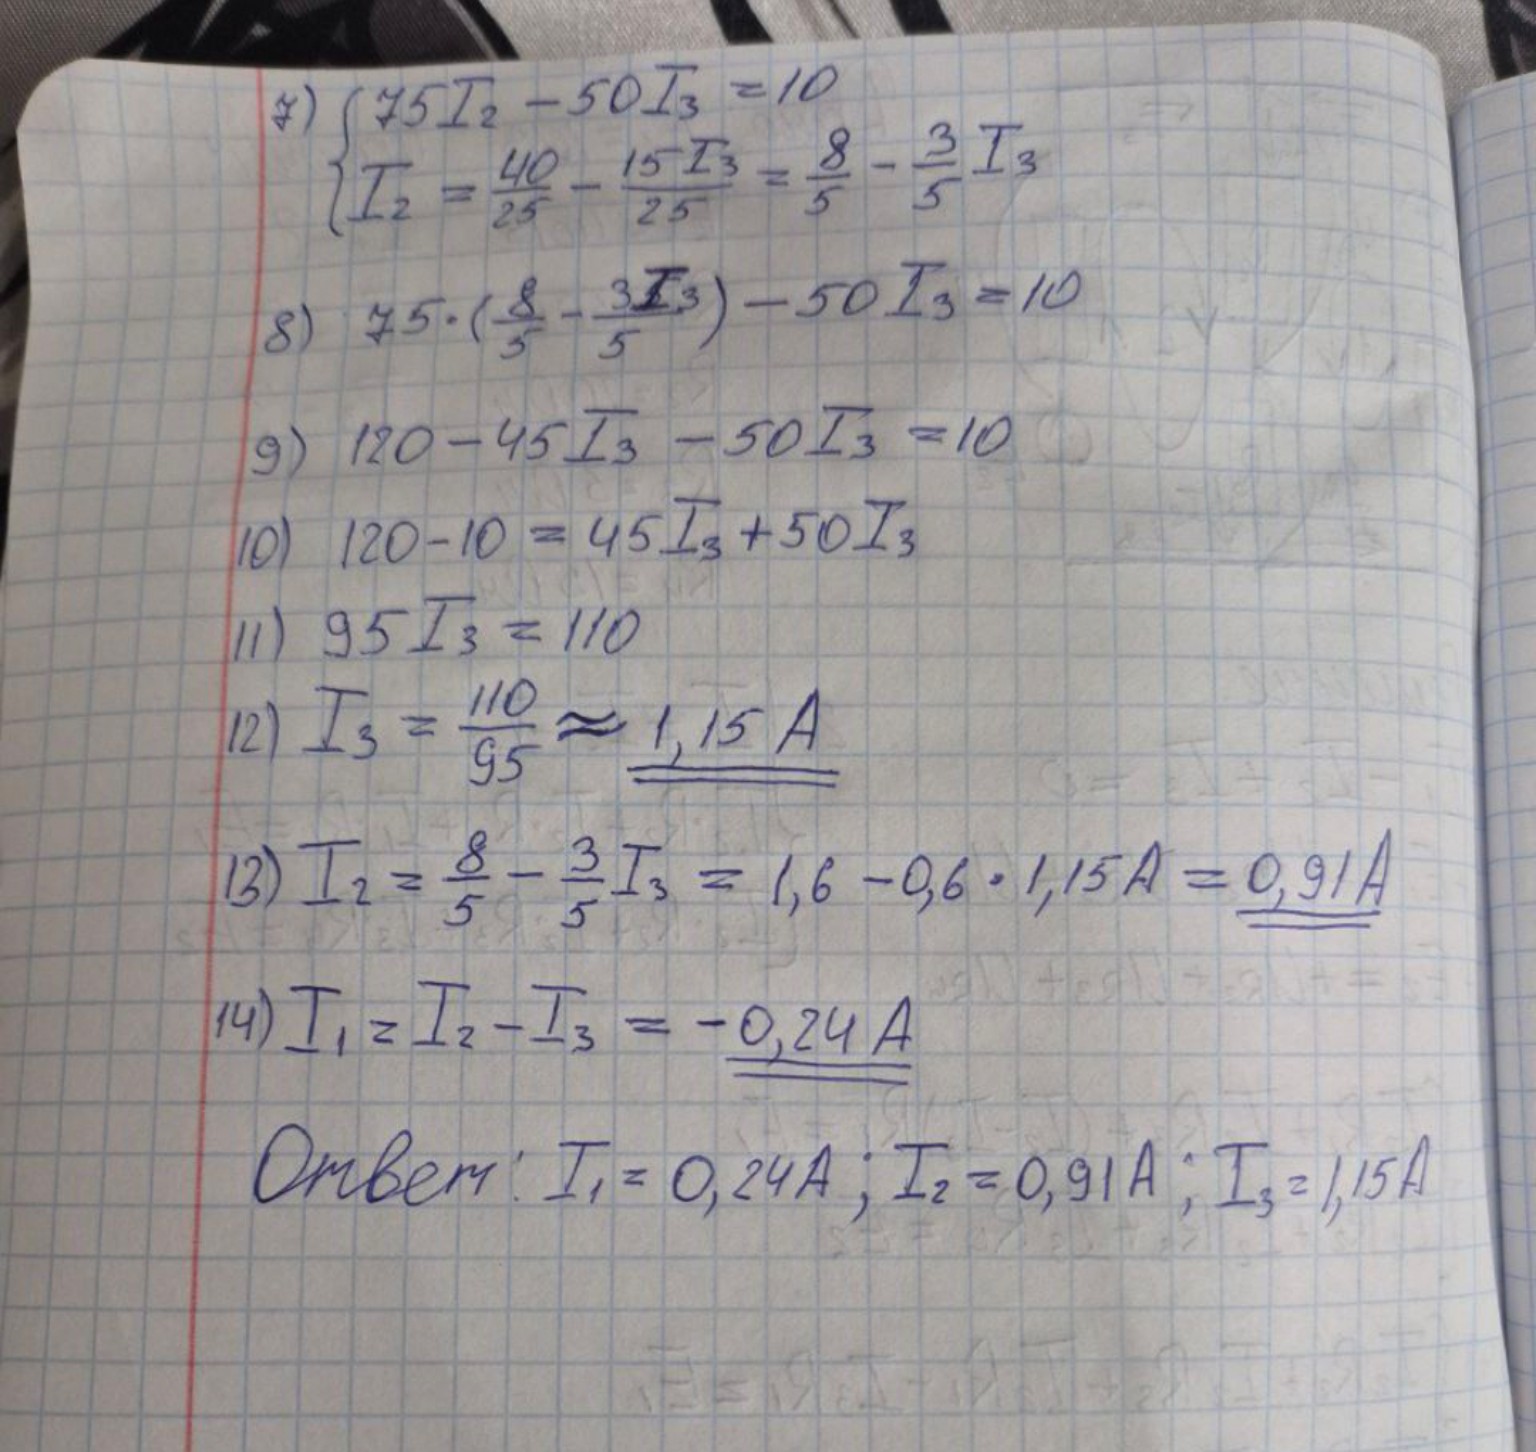 7) { 75I₂ - 50I₃ = 10
I₂ = 40/25 - 15I₃/25 = 8/5 - 3/5 I₃
8) 75·(8/5 - 3I₃/5) - 50I₃ = 10
9) 120 - 45I₃ - 50I₃ = 10
10) 120 - 10 = 45I₃ + 50I₃
11) 95I₃ = 110
12) I₃ = 110/95 ≈ 1,15 А
13) I₂ = 8/5 - 3/5 I₃ = 1,6 - 0,6 · 1,15А = 0,91А
14) I₁ = I₂ - I₃ = -0,24 А
Ответ: I₁ = 0,24А; I₂ = 0,91А; I₃ = 1,15А